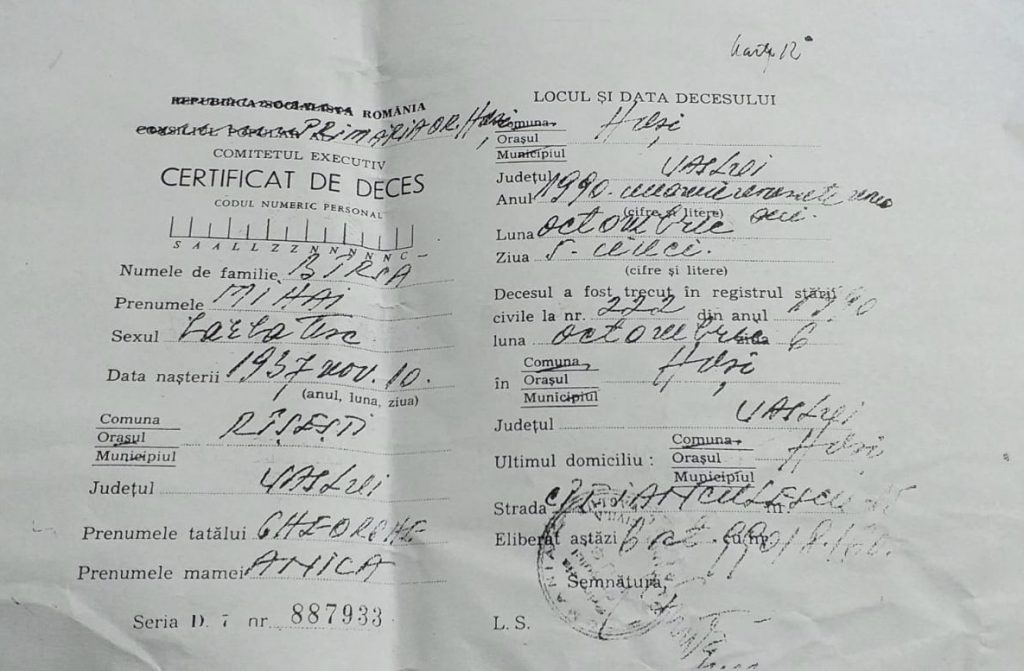 REPUBLICA SOCIALISTA ROMÂNIA
PRIMĂRIA OR. Huși
COMITETUL EXECUTIV
CERTIFICAT DE DECES
CODUL NUMERIC PERSONAL
S A A L L Z Z N N N N N C
Numele de familie BÎRSA
Prenumele MIHAI
Sexul bărbătesc
Data nașterii 1937 nov. 10.
(anul, luna, ziua)
Comuna
Orașul RÎȘEȘTI
Municipiul
Județul VASLUI
Prenumele tatălui GHEORGHE
Prenumele mamei ANICA
Seria D. 7 nr. 887933
LOCUL ȘI DATA DECESULUI
Comuna Huși
Orașul
Municipiul
Județul VASLUI
Anul 1990. una mie nouă sute
(cifre și litere)
Luna octombrie
Ziua 5. cinci.
(cifre și litere)
Decesul a fost trecut în registrul stării
civile la nr. 222 din anul 1990
luna octombrie ziua 6
Comuna Huși
în Orașul
Municipiul
Județul VASLUI
Comuna Huși
Ultimul domiciliu : Orașul
Municipiul
Strada nr.
Eliberat astăzi 6 cu nr.
Semnătura,
L. S.